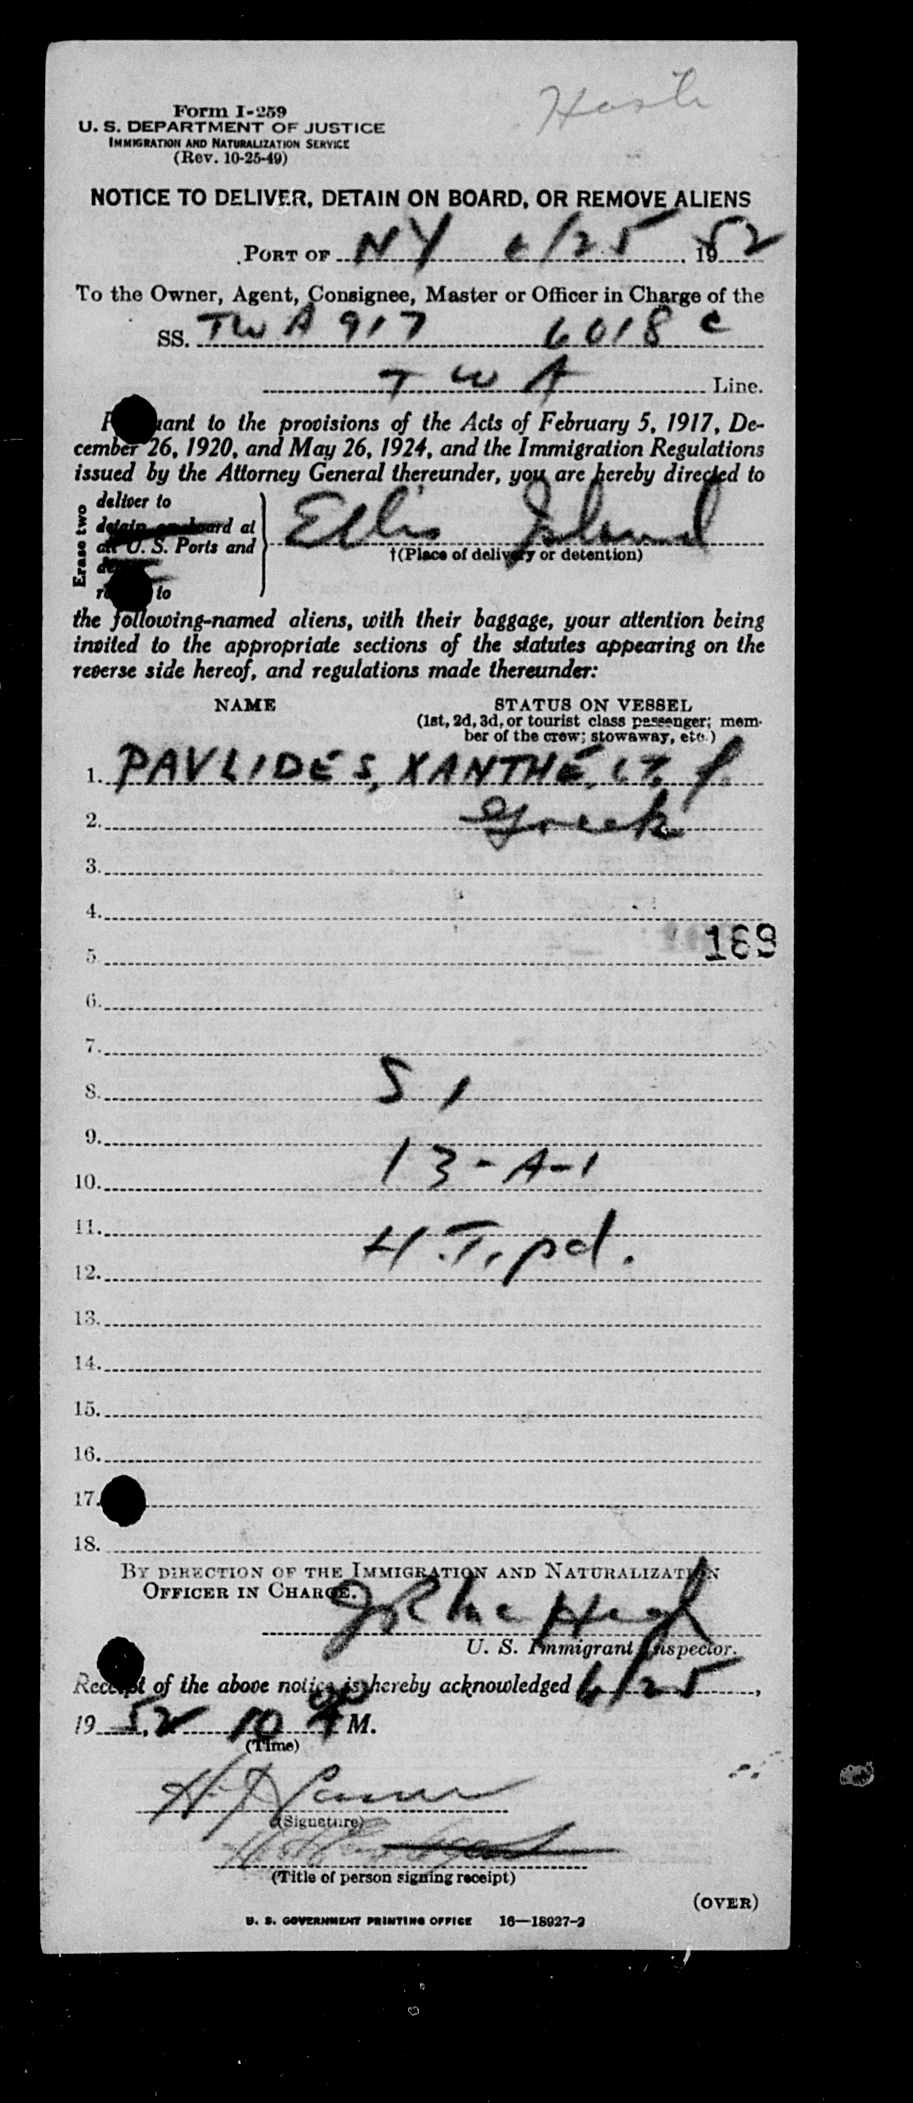 Form I-259
U. S. DEPARTMENT OF JUSTICE
IMMIGRATION AND NATURALIZATION SERVICE
(Rev. 10-25-49)
NOTICE TO DELIVER, DETAIN ON BOARD, OR REMOVE ALIENS
PORT OF NY 6/25 1952
To the Owner, Agent, Consignee, Master or Officer in Charge of the
SS. TWA 917 6018 C
TWA Line.
to the provisions of the Acts of February 5, 1917, De-
cember 26, 1920, and May 26, 1924, and the Immigration Regulations
issued by the Attorney General thereunder, you are hereby directed to
Erase two
deliver to
detain on board at
all U. S. Ports and
to
Ellis Island
†(Place of delivery or detention)
the following-named aliens, with their baggage, your attention being
invited to the appropriate sections of the statutes appearing on the
reverse side hereof, and regulations made thereunder:
NAME STATUS ON VESSEL
(1st, 2d, 3d, or tourist class passenger; mem-
ber of the crew; stowaway, etc.)
1. PAVLIDES, XANTHE, 17, f.
2. Greek
3.
4.
169
5.
6.
7.
8. S 1
9.
10. 13-A-1
11.
12. H.T. pd.
13.
14.
15.
16.
17.
18.
BY DIRECTION OF THE IMMIGRATION AND NATURALIZATION
OFFICER IN CHARGE.
U. S. Immigrant Inspector.
Receipt of the above notice is hereby acknowledged 6/25,
1952 10 M.
(Time)
(Signature)
(Title of person signing receipt)
(OVER)
U. S. GOVERNMENT PRINTING OFFICE 16—18927-2